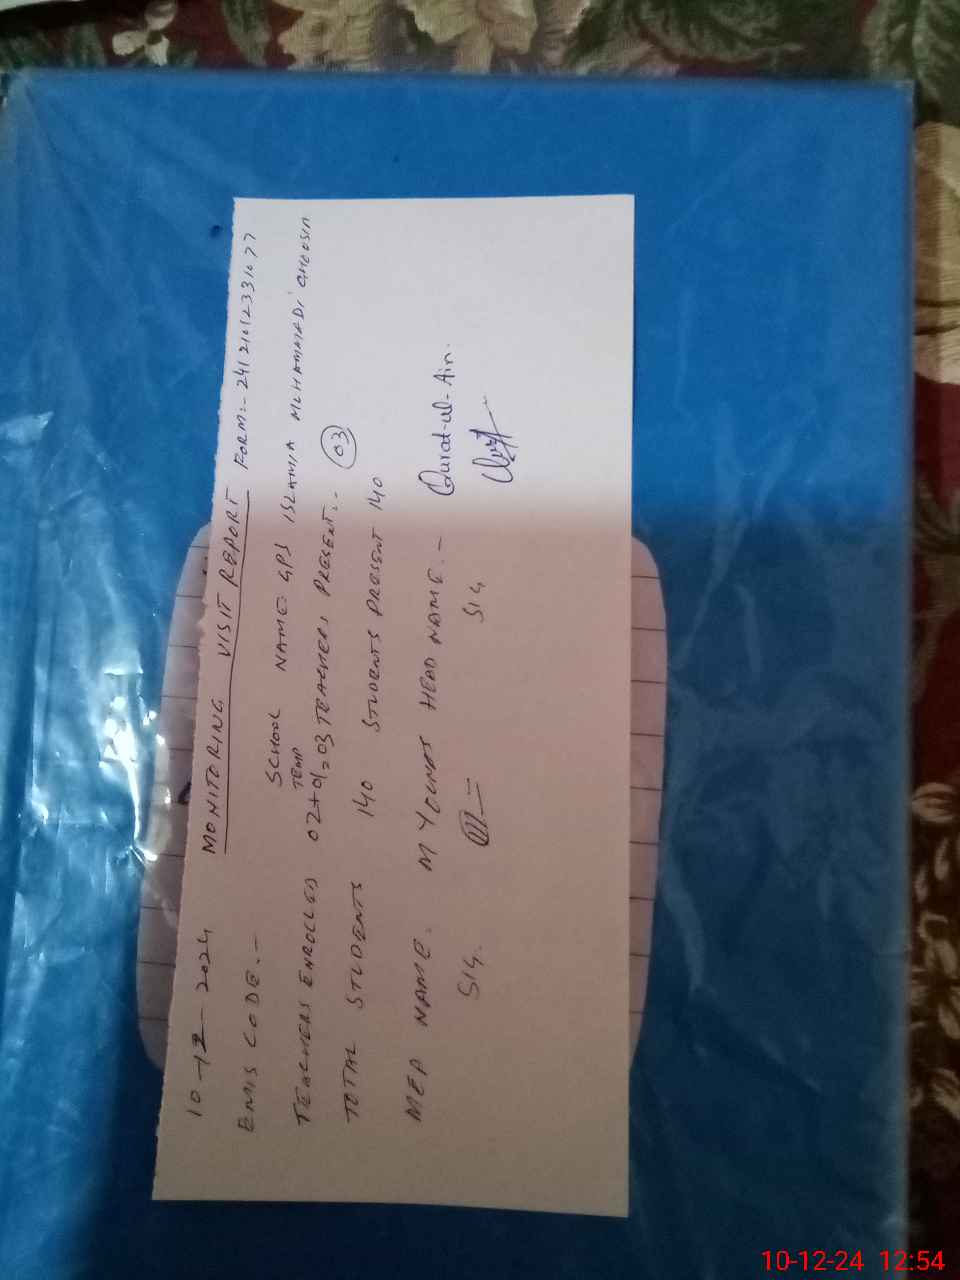 10-12-2024 MONITORING VISIT REPORT FORM:- 24121012331077
EMIS CODE:- SCHOOL NAME: GPS ISLAMIA MUHAMMADI GHOUSIA
TEMP
TEACHERS ENROLLED 02+01=03 TEACHERS PRESENT:- 03
TOTAL STUDENTS 140 STUDENTS PRESENT 140
MEA NAME. M YOUNAS HEAD NAME:- Qurat-ul-Ain.
SIG. SIG
10-12-24 12:54